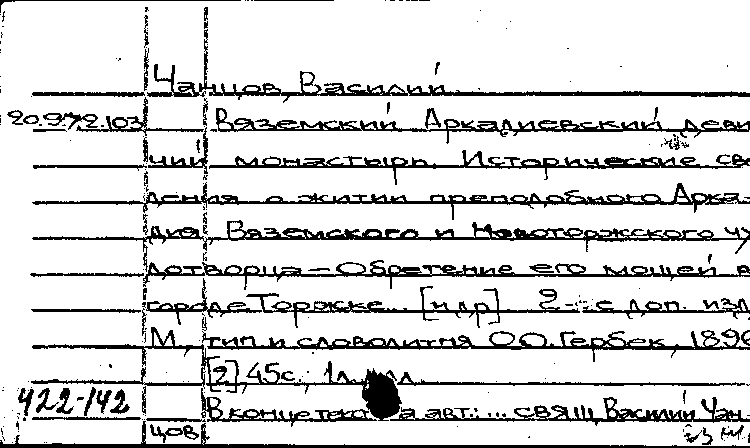 Чанцов, Василий.
20.972.103 Вяземский Аркадиевский деви
чий монастырь. Исторические све
дения о житии преподобного Арка-
дия, Вяземского и Новоторжского чу
дотворца – Обретение его мощей в
городе Торжке... [и др] 2-е с доп. изд
М., тип и словолитня О.О. Гербек, 1896
[2], 45с., 1л.
422-142 В конце авт.: ... свящ. Василий Чан
цов